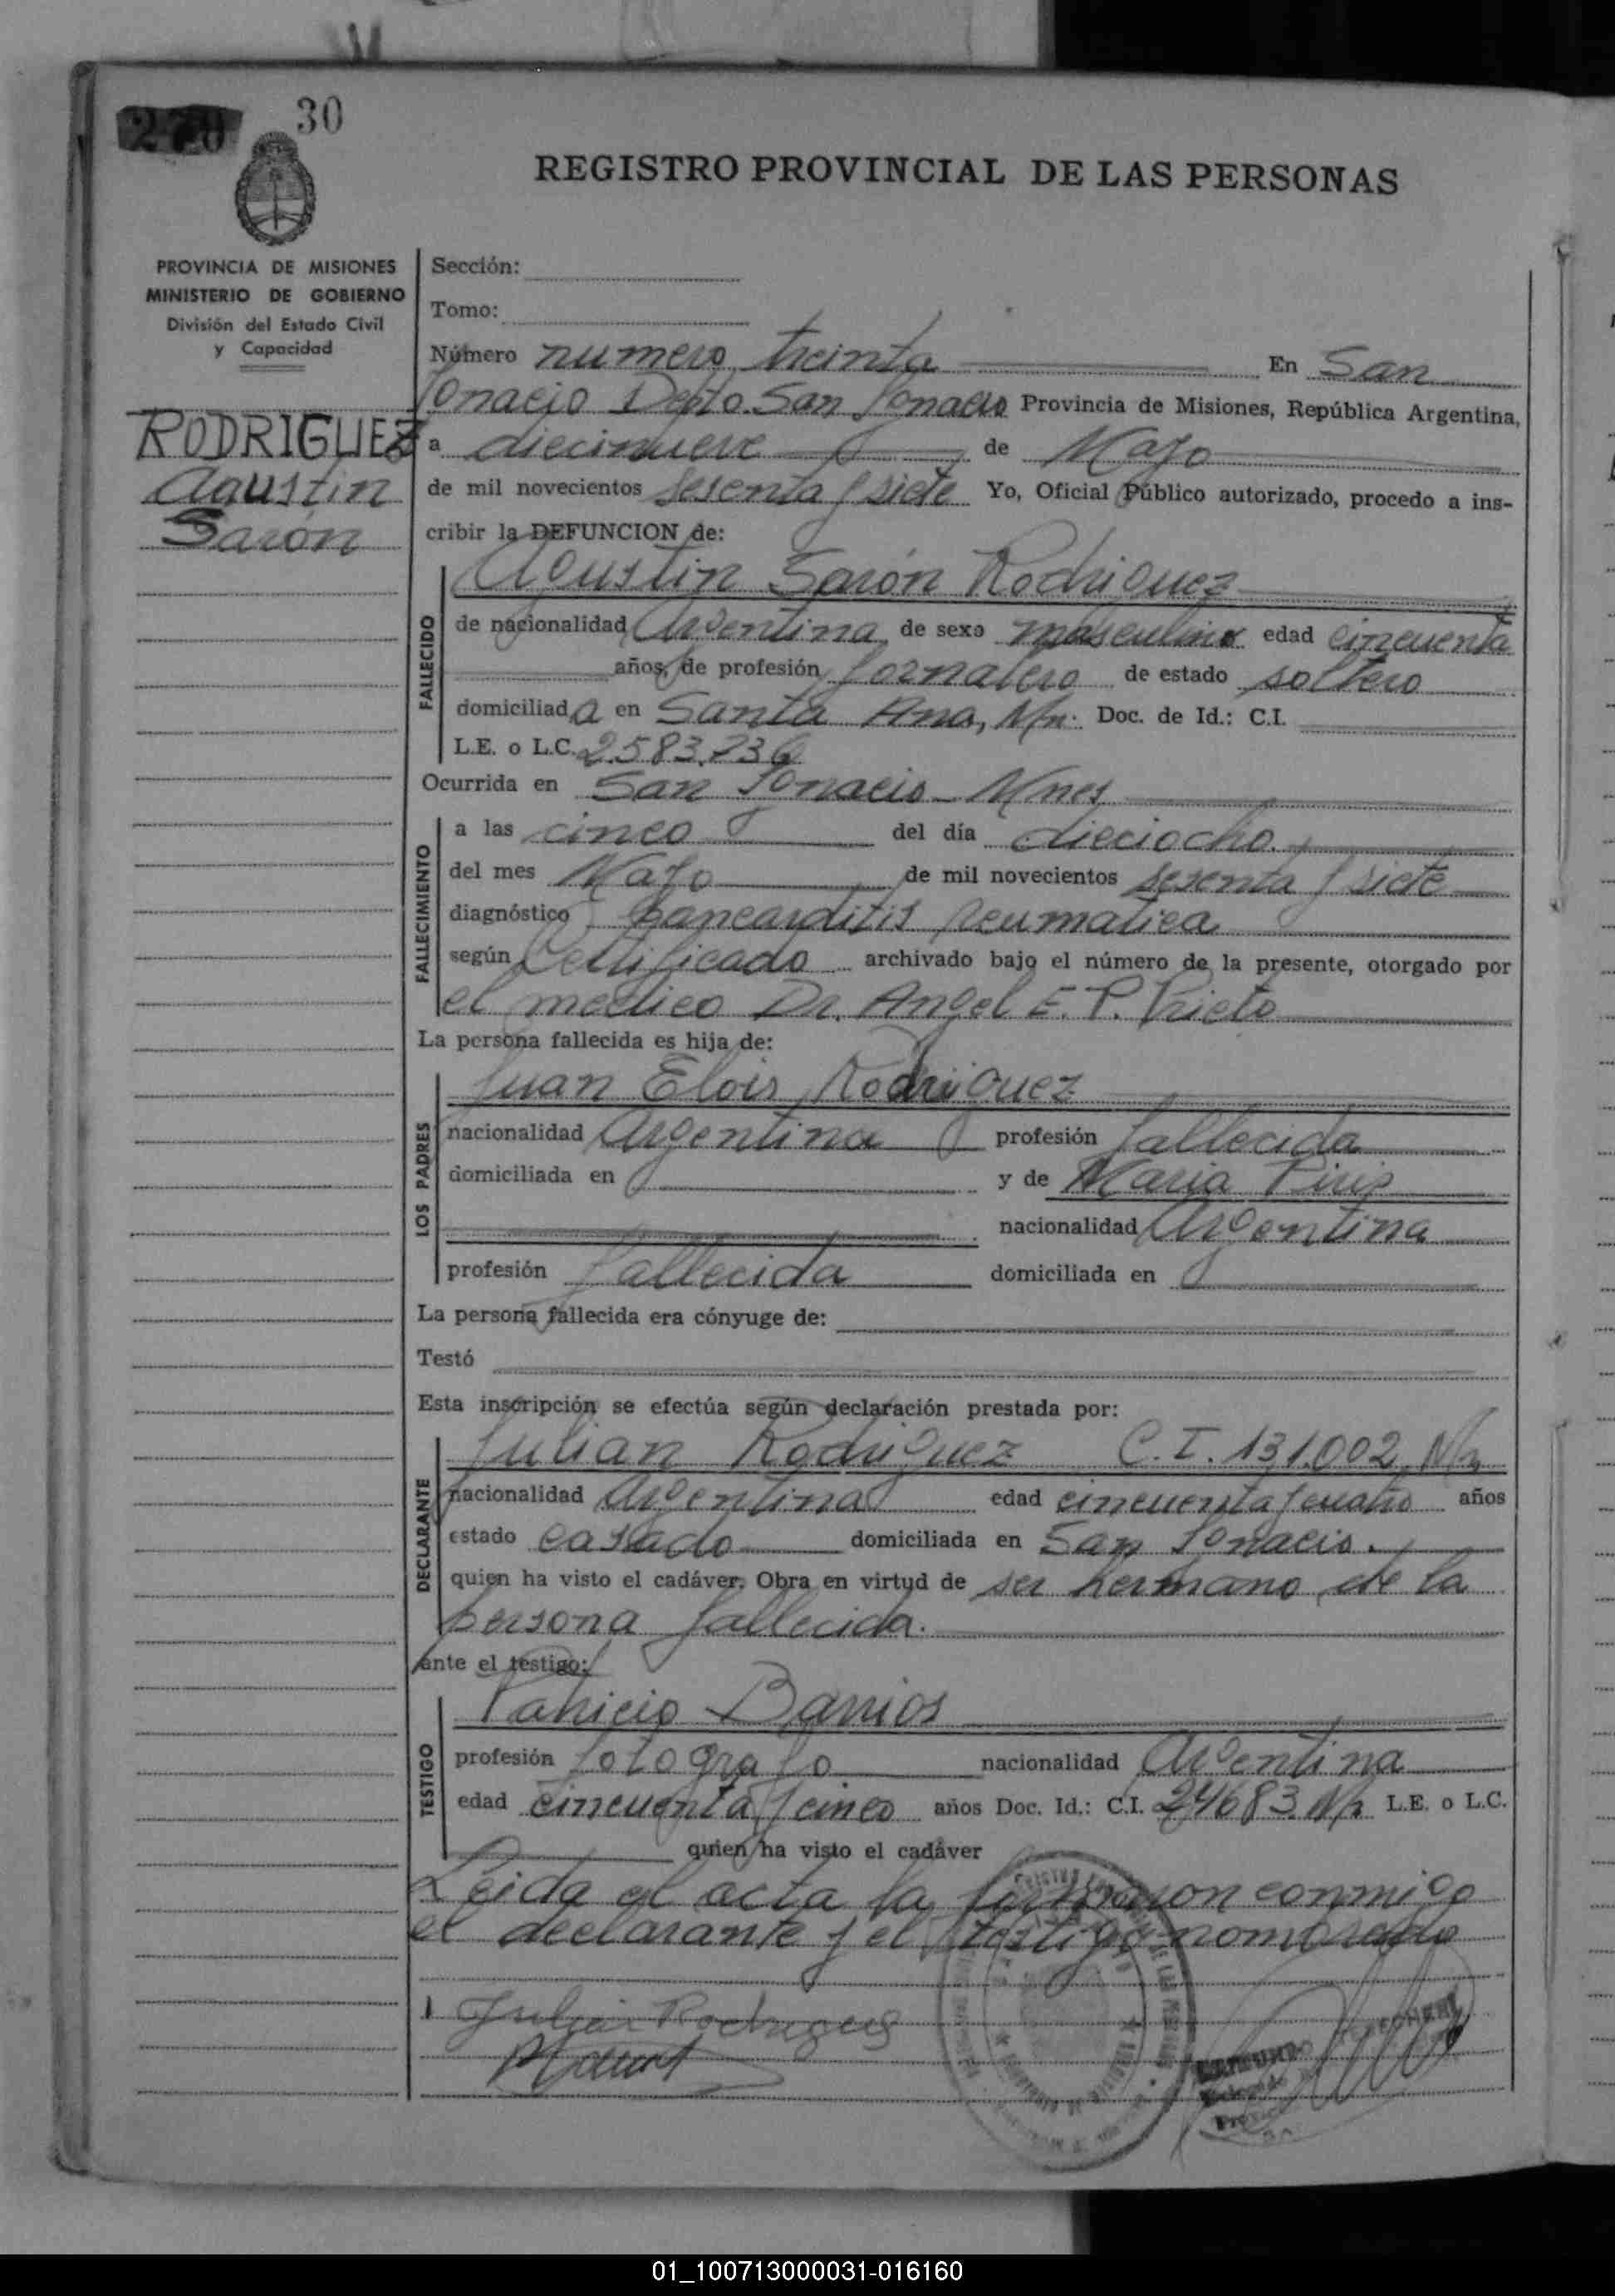 30
REGISTRO PROVINCIAL DE LAS PERSONAS
PROVINCIA DE MISIONES
MINISTERIO DE GOBIERNO
División del Estado Civil
y Capacidad
RODRIGUEZ
Agustin
Sarón
Sección:
Tomo:
Número numero treinta En San
Ignacio Depto. San Ignacio Provincia de Misiones, República Argentina,
a diecinueve de Mayo
de mil novecientos sesenta y siete Yo, Oficial Público autorizado, procedo a ins-
cribir la DEFUNCION de:
Agustin Sarón Rodriguez
FALLECIDO
de nacionalidad Argentina de sexo masculino edad cincuenta
años, de profesión Jornalero de estado soltero
domiciliada en Santa Ana, Mn. Doc. de Id.: C.I.
L.E. o L.C. 2.583.236
Ocurrida en San Ignacio - Mnes
FALLECIMIENTO
a las cinco del día dieciocho.
del mes Mayo de mil novecientos sesenta y siete
diagnóstico pancarditis reumatica
según Certificado archivado bajo el número de la presente, otorgado por
el medico Dr. Angel E. P. Prieto
La persona fallecida es hija de:
LOS PADRES
Juan Elois Rodriguez
nacionalidad Argentina profesión fallecida
domiciliada en y de Maria Piris
nacionalidad Argentina
profesión fallecida domiciliada en
La persona fallecida era cónyuge de:
Testó
Esta inscripción se efectúa según declaración prestada por:
DECLARANTE
Julian Rodriguez C.I. 131.002 Mn
nacionalidad Argentina edad cincuenta y cuatro años
estado casado domiciliada en San Ignacio.
quien ha visto el cadáver. Obra en virtud de ser hermano de la
persona fallecida.
ante el testigo:
TESTIGO
Patricio Barrios
profesión fotografo nacionalidad Argentina
edad cincuenta y cinco años Doc. Id.: C.I. 24683 Mn L.E. o L.C.
quien ha visto el cadáver
Leida el acta la firmaron conmigo
el declarante y el testigo nombrado
Julian Rodriguez
01_100713000031-016160